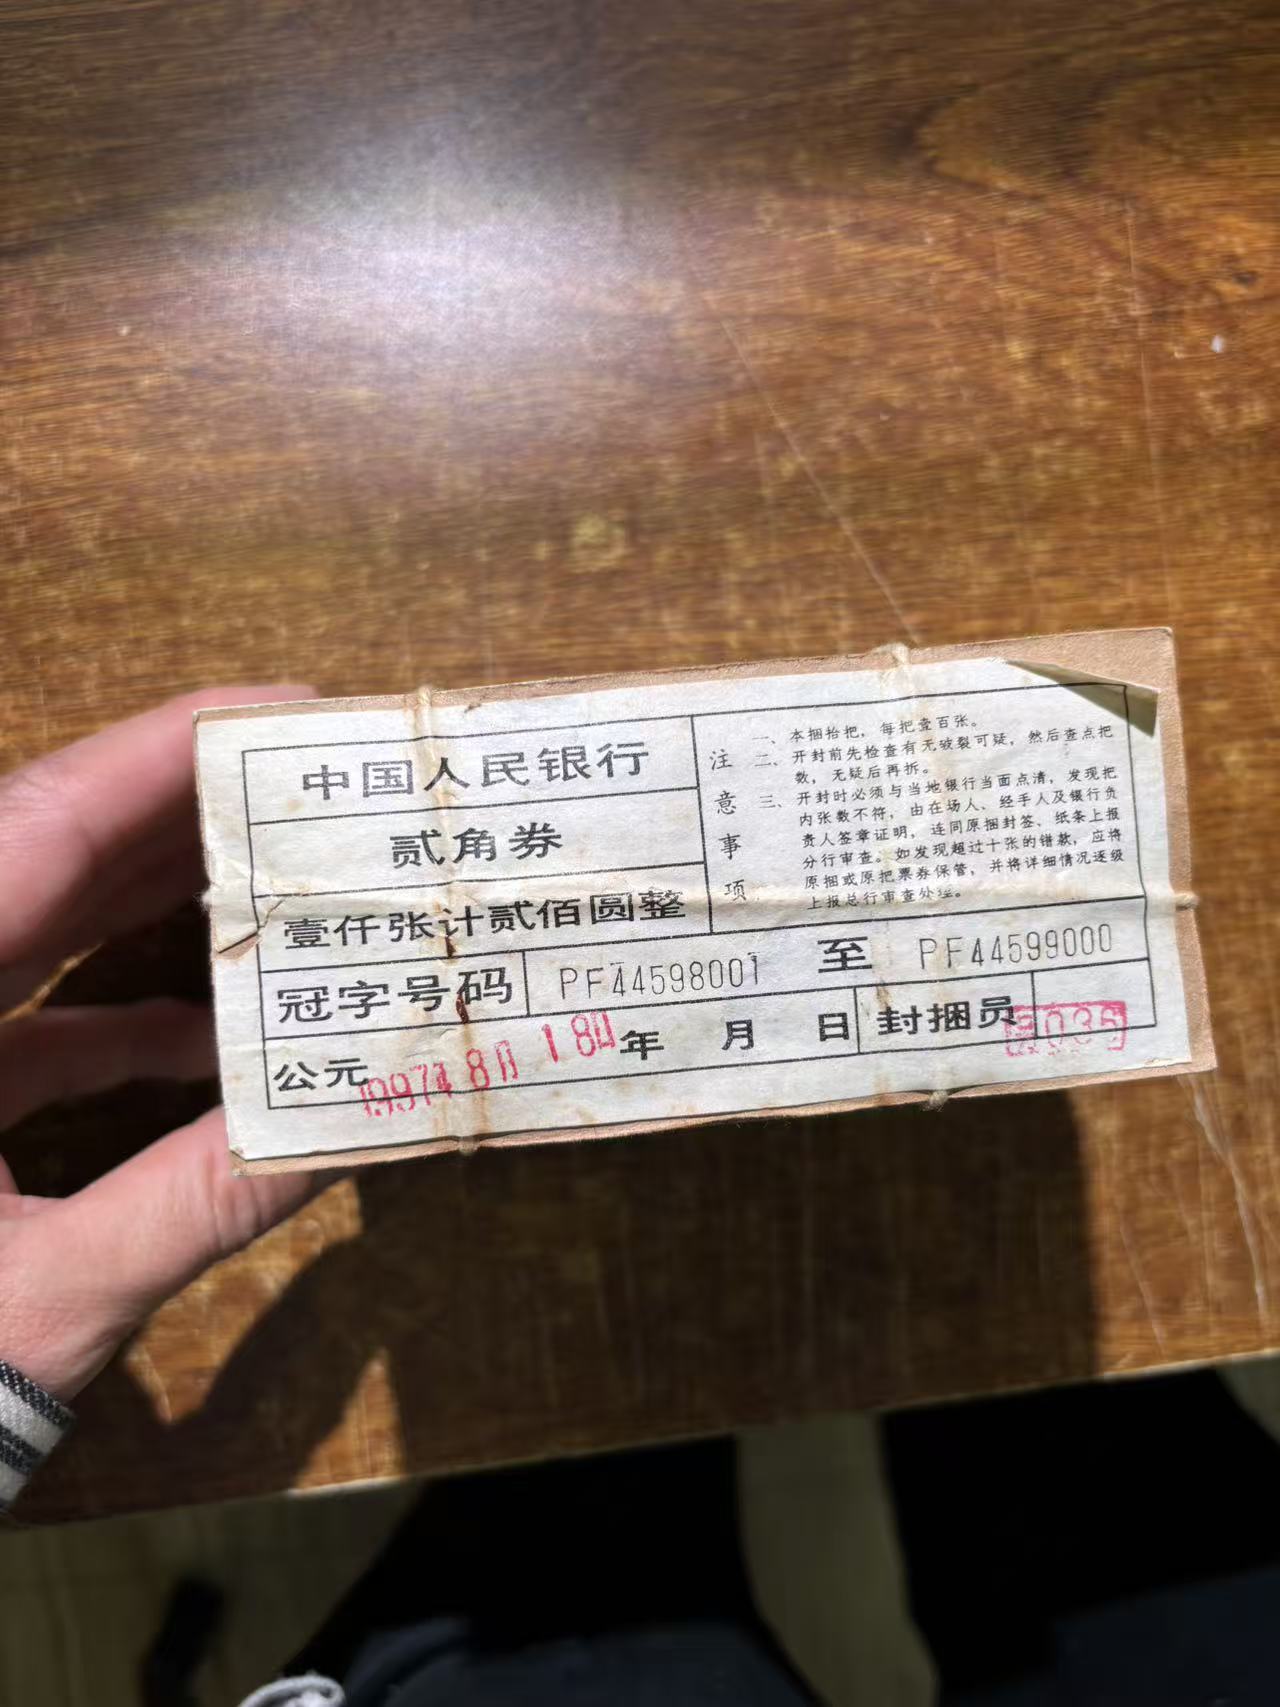 中国人民银行
贰角券
壹仟张计贰佰圆整
注意事项
一、本捆拾把，每把壹百张。
二、开封前先检查有无破裂可疑，然后查点把
数，无疑后再拆。
三、开封时必须与当地银行当面点清，发现把
内张数不符，由在场人、经手人及银行负
责人签章证明，连同原捆封签、纸条上报
分行审查。如发现超过十张的错款，应将
原捆或原把票券保管，并将详细情况逐级
上报总行审查处理。
冠字号码 PF44598001 至 PF44599000
公元 年 月 日 封捆员
1997 8月 18日
035